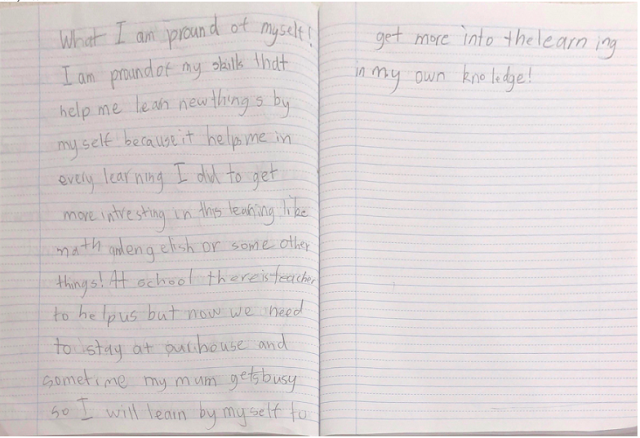 What I am pround of myself!
I am pround of my skills that
help me leah new things by
my self because it help me in
every learning I did to get
more intresting in this leaning like
math and engelish or some other
things! At school there is teacher
to help us but now we need
to stay at our house and
sometime my mum gets busy
so I will learn by my self to
get more into the learn ing
in my own knoledge!